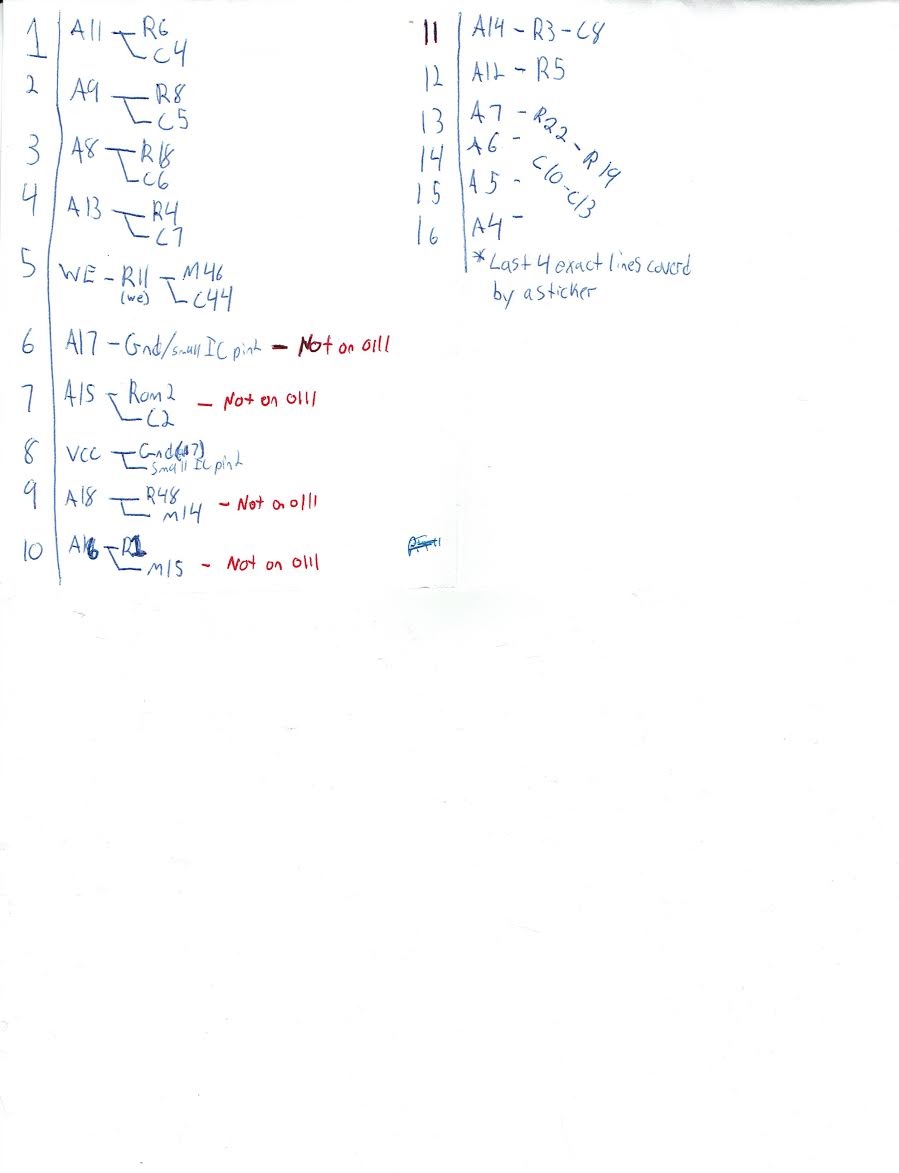 1 A11 R6
C4
2 A9 R8
C5
3 A8 R18
C6
4 A13 R4
C7
5 WE - R11 M46
(we) C44
6 A17 - Gnd/small IC pin - Not on 0111
7 A15 Rom2 - Not on 0111
C2
8 VCC Gnd
Small IC pin
9 A18 R48 - Not on 0111
M14
10 A16 R1
M15 - Not on 0111
11 A14 - R3 - C8
12 A12 - R5
13 A7 - R22 - R19
14 A6 - C10 - C13
15 A5 -
16 A4 -
*Last 4 exact lines coverd
by a sticker